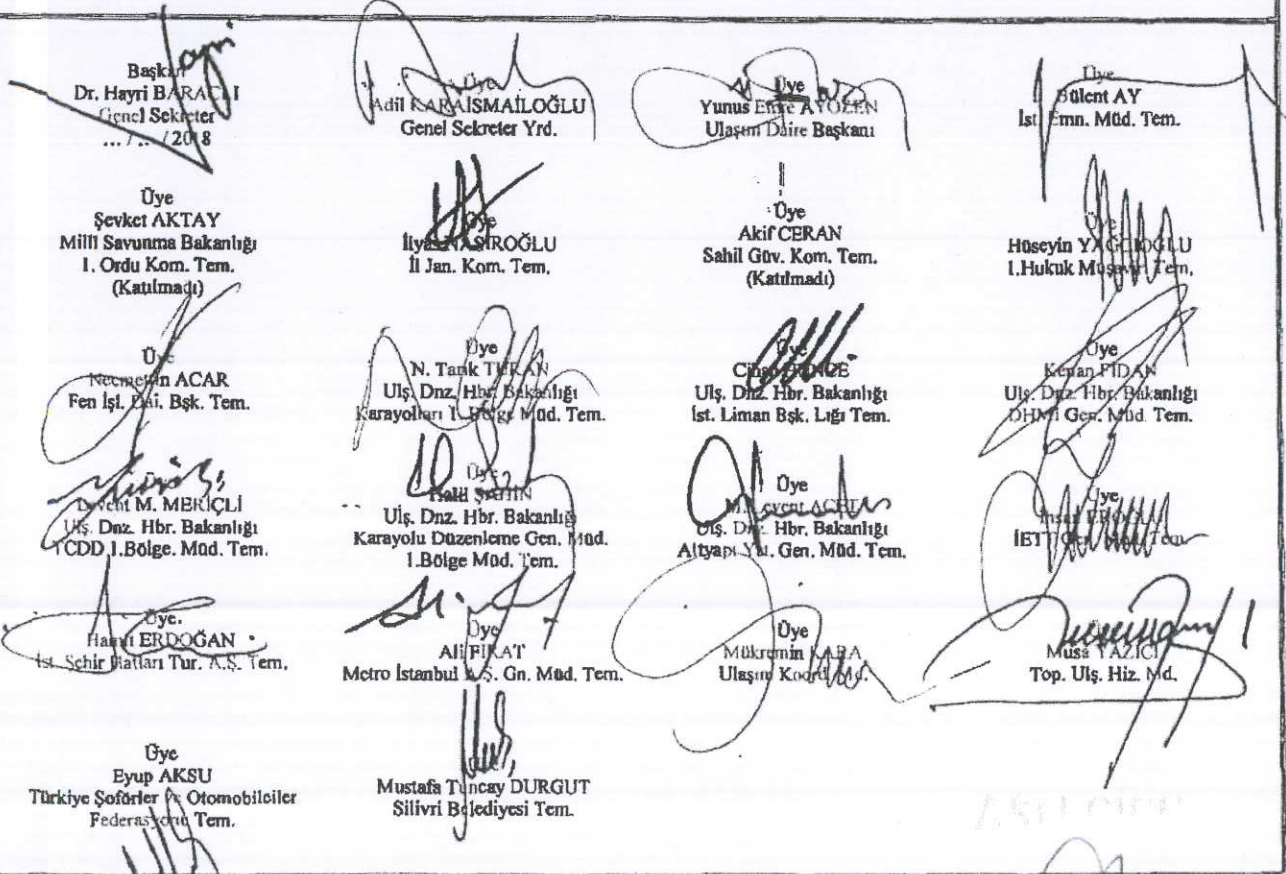 Başkan
Dr. Hayri BARAÇLI
Genel Sekreter
... / ... / 2018
Üye
Adil KARAİSMAİLOĞLU
Genel Sekreter Yrd.
Üye
Yunus Emre AYÖZEN
Ulaşım Daire Başkanı
Üye
Bülent AY
İst. Emn. Müd. Tem.
Üye
Şevket AKTAY
Milli Savunma Bakanlığı
1. Ordu Kom. Tem.
(Katılmadı)
Üye
İlyas NASIROĞLU
İl Jan. Kom. Tem.
Üye
Akif CERAN
Sahil Güv. Kom. Tem.
(Katılmadı)
Hüseyin YAĞCIOĞLU
1.Hukuk Müşaviri Tem.
Üye
Necmettin ACAR
Fen İşl. Dai. Bşk. Tem.
Üye
N. Tarık TURAN
Ulş. Dnz. Hbr. Bakanlığı
Karayolları 1. Bölge Müd. Tem.
Üye
Ulş. Dnz. Hbr. Bakanlığı
İst. Liman Bşk. Lığı Tem.
Üye
Kenan FİDAN
Ulş. Dnz. Hbr. Bakanlığı
DHMİ Gen. Müd. Tem.
M. MERİÇLİ
Ulş. Dnz. Hbr. Bakanlığı
TCDD 1.Bölge. Müd. Tem.
Üye
Halil ŞAHİN
Ulş. Dnz. Hbr. Bakanlığı
Karayolu Düzenleme Gen. Müd.
1.Bölge Müd. Tem.
Üye
M. Levent
Ulş. Dnz. Hbr. Bakanlığı
Altyapı Ytı. Gen. Müd. Tem.
Üye
İETT Tem.
Üye.
ERDOĞAN
İst. Şehir Hatları Tur. A.Ş. Tem.
Üye
Ali FIRAT
Metro İstanbul A.Ş. Gn. Müd. Tem.
Üye
Mükremin KARA
Ulaşım Koord. Md.
Musa YAZICI
Top. Ulş. Hiz. Md.
Üye
Eyup AKSU
Türkiye Şoförler ve Otomobilciler
Federasyonu Tem.
Mustafa Tuncay DURGUT
Silivri Belediyesi Tem.